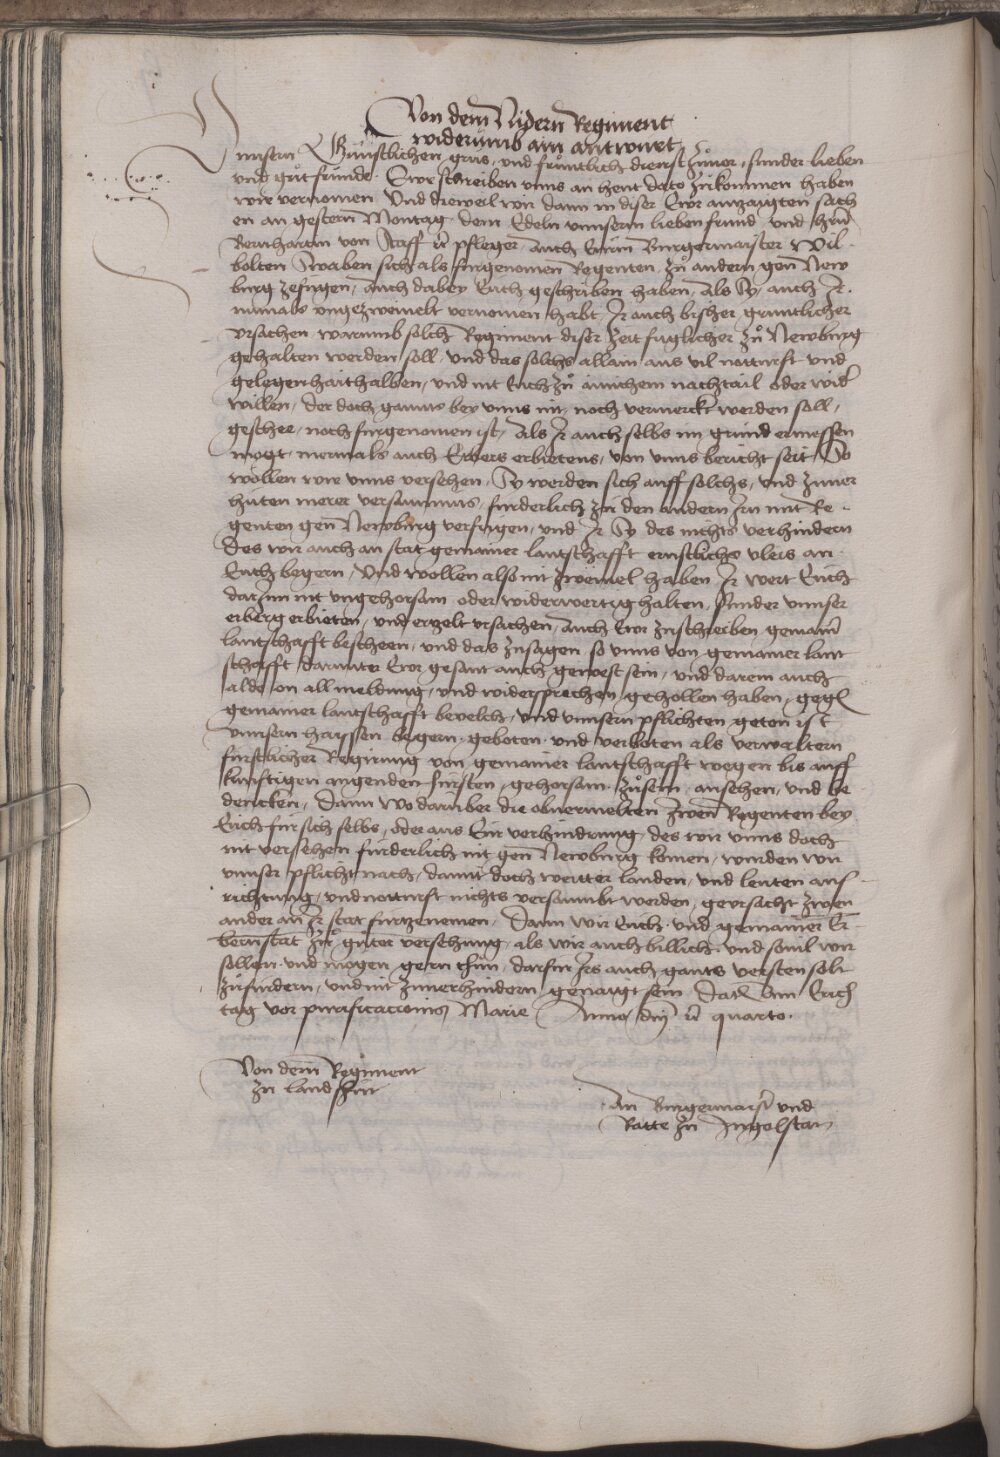 Von dem Nidern Regiment
widerumb ain antwurt
Unnsern Gunstlichen grus, und fruntlich dienst zuuor, sunder lieben
und gut frunde. Ewr schreiben unns an heut dato zukomen haben
wir vernomen Und dieweil wir dann in diser Ewr anzaigten sach
en an gestern Montag, dem Edeln unnserm lieben frund, und herrn
Bernhartin von Stauff pfleger, auch Eurm Burgermaister Wil-
bolten Swaben sich als furgenomen Regenten, zu andern gen New
burg zefugen, auch dabey Euch geschriben haben, als Sy, auch Ir
nunals ungezweiuelt vernomen habt, Ir auch bisher gruntlicher
Ursachen warumb solch Regiment diser Zeit fuglicher zu Newburg
gehalten werden soll, und das solchs allain aus vil notturft und
gelegenhait halben, und nit Euch zu ainichem nachtail oder wider
willen, der doch ganntz bey unns nit, noch vermerckt werden soll,
geschee, noch furgenomen ist, Als Ir auch selbs im grund ermessen
mogt, mermals auch Erbers erbietens, von unns bericht seit, So
wollen wir unns versehen, Sy werden sich auff solchs, und zuuer
huten merer versaumnus, furderlich zu den andern Irn mit Re-
genten gen Newburg verfugen, und Ir Sy des nichts verhindern
Des wir auch an stat gemainer lantschafft ernstlichs vleis an
Euch begern, Und wollen also nit zweiuel haben Ir wert Euch
darInn nit ungehorsam oder widerwertig halten, Sunder unnser
erberg erbieten, und erzelt ursachen, auch Ewr zuschreiben gemainer
lantschafft bescheen, und das zusagen, so unns von gemainer lant
schafft, darunter Ewr gesant auch gewest sein, und darein auch
alde on all meldung, und widersprechen, geholffen haben, gegen
gemainer lantschafft bevelch, und unnsern pflichten geton ist
unnsern haissen begern, geboten, und verboten als verwaltern
furstlicher Regirung von gemainer lantschafft wegen bis auff
kunftigen angenden fursten, gehorsam zusein, ansehen, und be
dencken, Dann wo daruber die obuermelten zwen Regenten bey
Euch fur sich selbs, oder aus Eur verhindrung, des wir unns doch
nit versehen furderlich nit gen Newburg komen, wurden wir
unnser pflicht nach, damit doch weitter landen, und leuten aus-
richtung, und notturft nichts versaumbt werden, geursacht zwen
ander an Ir stat furzenemen, Dann wir Euch, und gemainer Er-
bern stat zu guter versehung, als wir auch billich, und souil wir
sollen, und mogen gern thun, darfur Irs auch gants versten solt
zufurdern, und nit zuuerhindern genaigt sein Datum am Erich
tag vor purificacionis Marie Anno, dni quarto.
Von dem Regiment
zu landshut
An Burgermaister und
Ratte zu Ingelstat